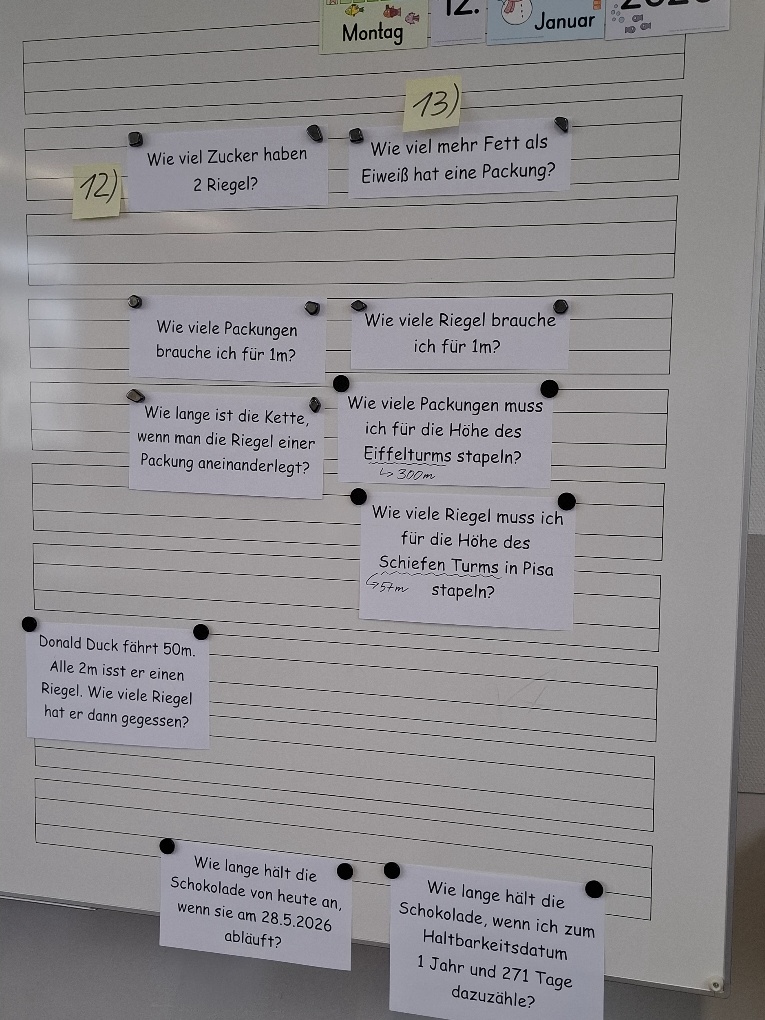 Montag
12.
Januar
2026
13)
12)
Wie viel Zucker haben
2 Riegel?
Wie viel mehr Fett als
Eiweiß hat eine Packung?
Wie viele Packungen
brauche ich für 1m?
Wie viele Riegel brauche
ich für 1m?
Wie lange ist die Kette,
wenn man die Riegel einer
Packung aneinanderlegt?
Wie viele Packungen muss
ich für die Höhe des
Eiffelturms stapeln?
↳ 300m
Wie viele Riegel muss ich
für die Höhe des
Schiefen Turms in Pisa
↳57m stapeln?
Donald Duck fährt 50m.
Alle 2m isst er einen
Riegel. Wie viele Riegel
hat er dann gegessen?
Wie lange hält die
Schokolade von heute an,
wenn sie am 28.5.2026
abläuft?
Wie lange hält die
Schokolade, wenn ich zum
Haltbarkeitsdatum
1 Jahr und 271 Tage
dazuzähle?